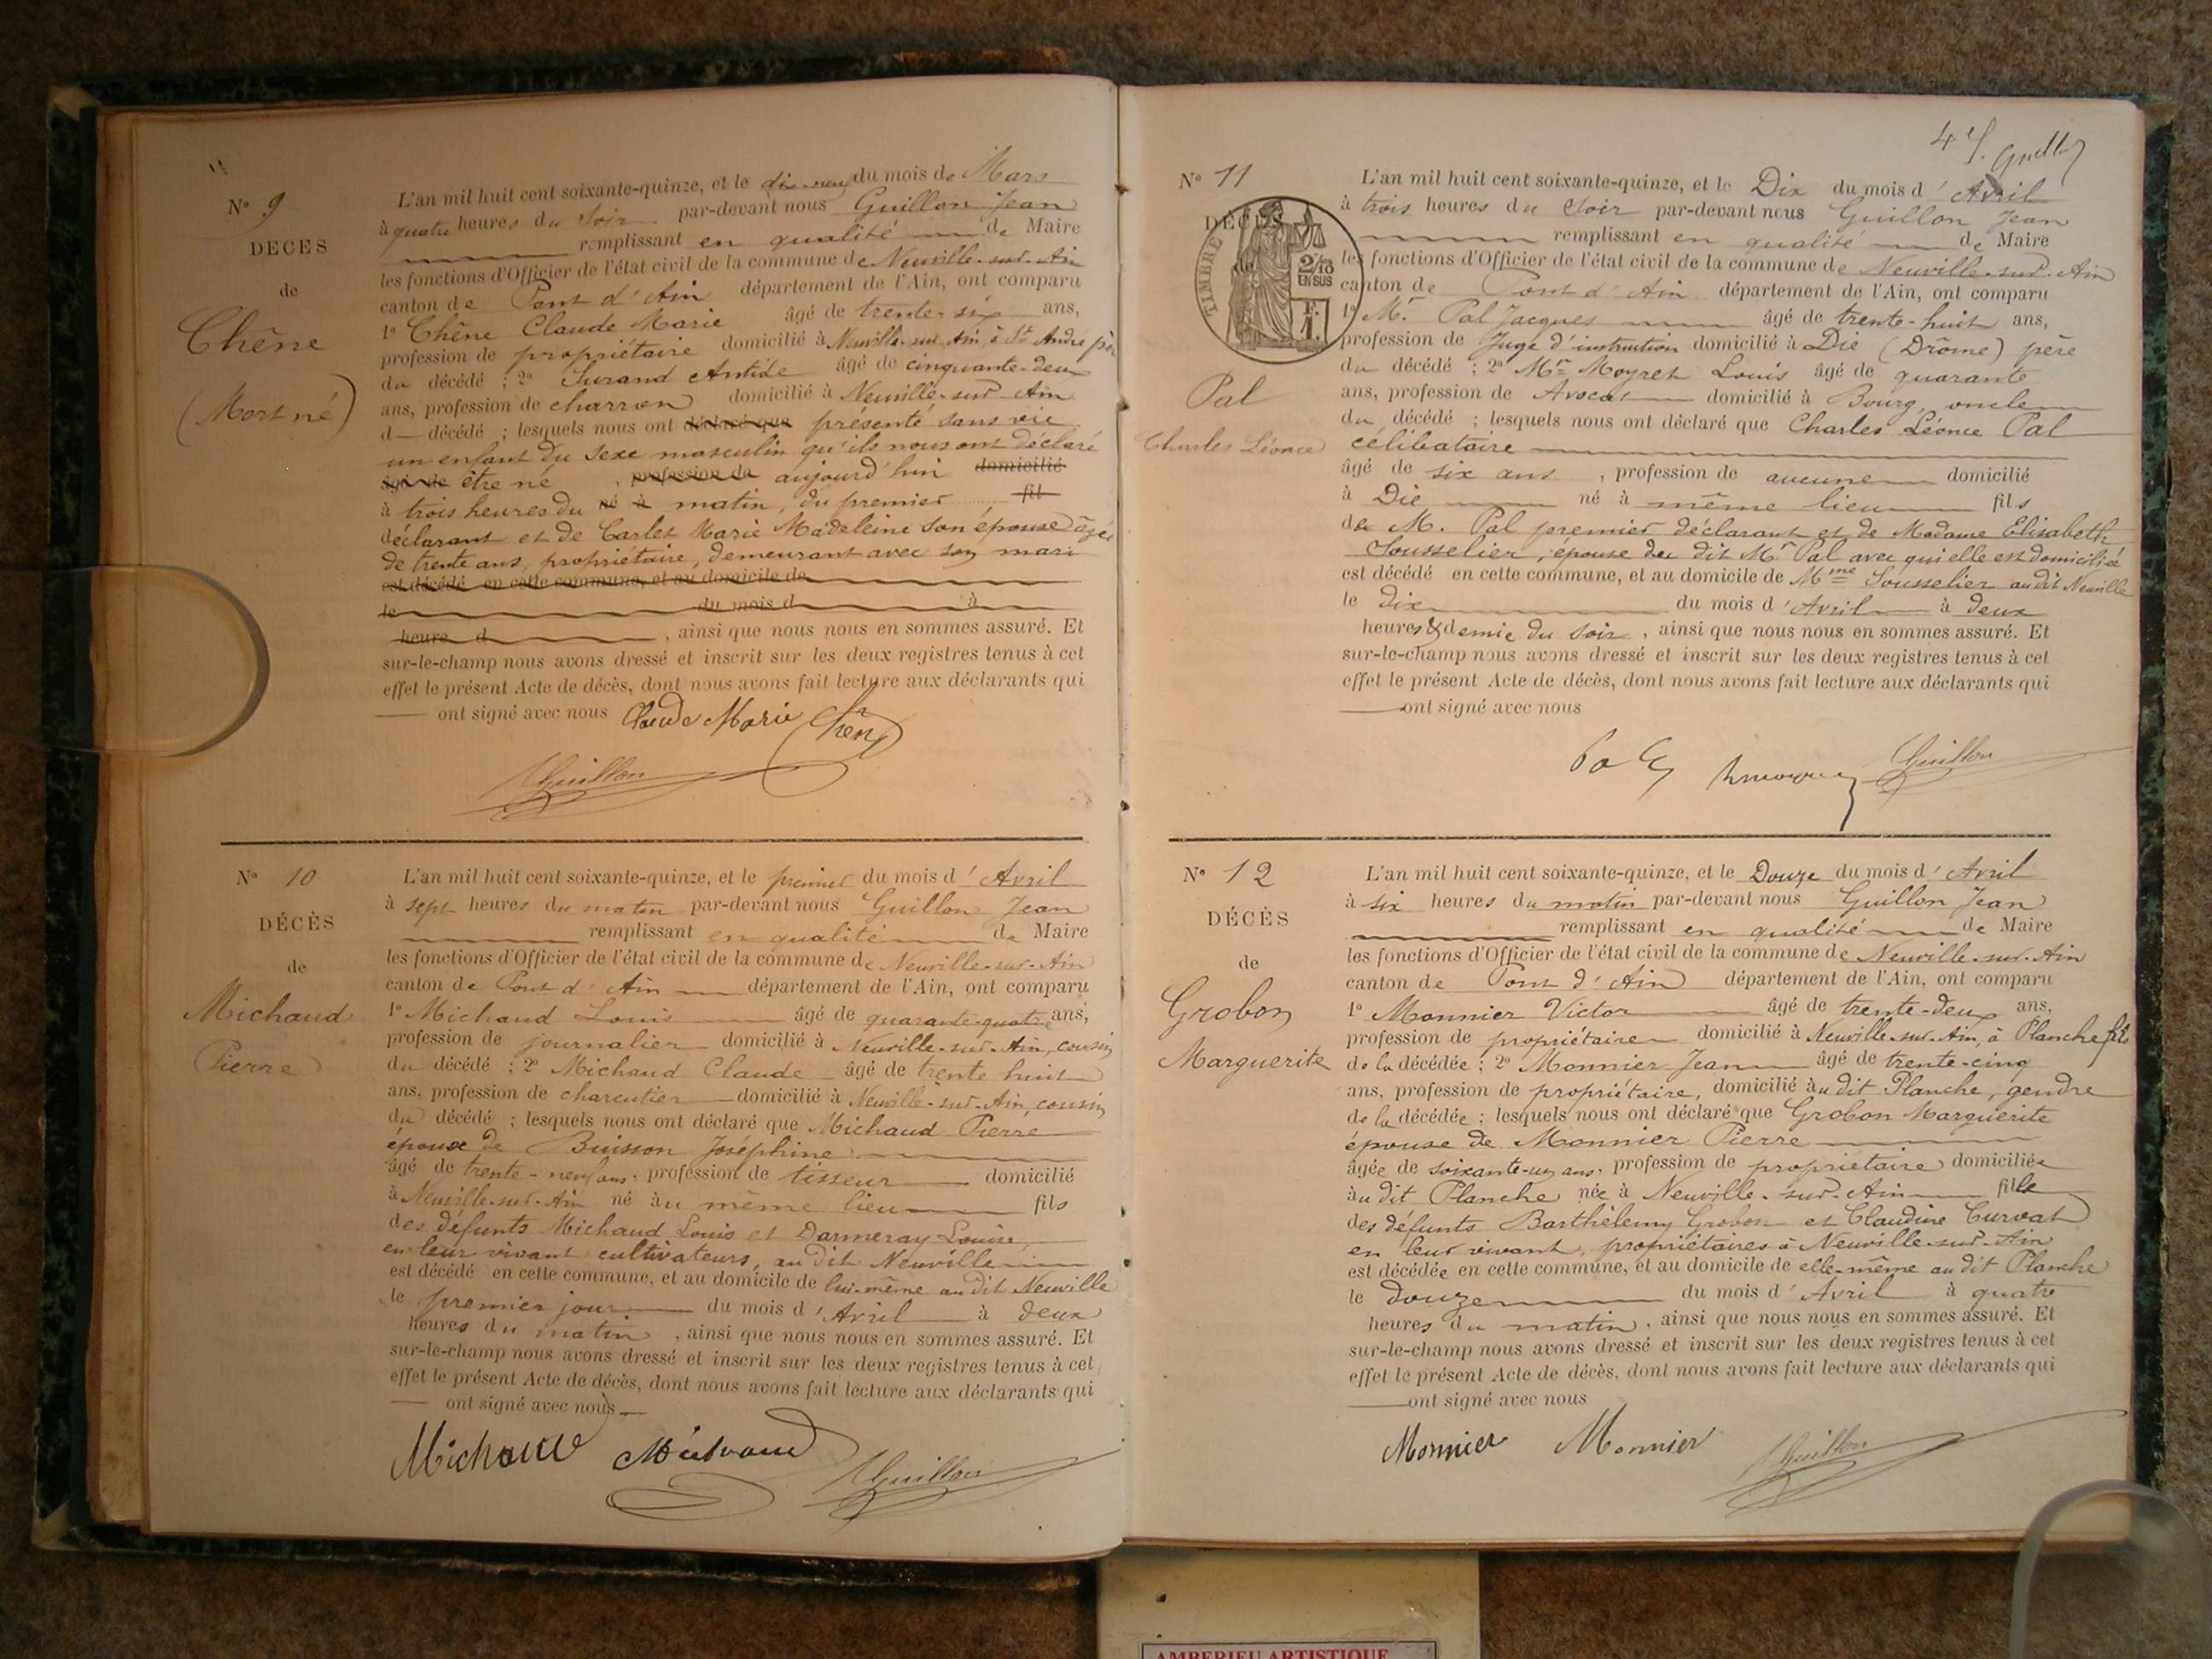 N° 9
DÉCÈS
de
Chêne
(Mort né)
L'an mil huit cent soixante-quinze, et le dix-neuf du mois de Mars
à quatre heures du Soir par-devant nous Guillon Jean
remplissant en qualité de Maire
les fonctions d'Officier de l'état civil de la commune de Neuville-sur-Ain
canton de Pont d'Ain département de l'Ain, ont comparu
1° Chêne Claude Marie âgé de trente-six ans,
profession de propriétaire domicilié à Neuville-sur-Ain, à St André père
du décédé ; 2° Surand Antide âgé de cinquante-deux
ans, profession de charron domicilié à Neuville-sur-Ain
d décédé ; lesquels nous ont déclaré que présenté sans vie
un enfant du sexe masculin qu'ils nous ont déclaré
âgé de être né , profession de aujourd'hui domicilié
à trois heures du né à matin, du premier fil
déclarant et de Carlet Marie Madeleine son épouse âgée
de trente ans, propriétaire, demeurant avec son mari
est décédé en cette commune, et au domicile de
le du mois d à
heure d , ainsi que nous nous en sommes assuré. Et
sur-le-champ nous avons dressé et inscrit sur les deux registres tenus à cet
effet le présent Acte de décès, dont nous avons fait lecture aux déclarants qui
ont signé avec nous Claude Marie Chêne
Guillon
N° 10
DÉCÈS
de
Michaud
Pierre
L'an mil huit cent soixante-quinze, et le premier du mois d'Avril
à sept heures du matin par-devant nous Guillon Jean
remplissant en qualité de Maire
les fonctions d'Officier de l'état civil de la commune de Neuville-sur-Ain
canton de Pont d'Ain département de l'Ain, ont comparu
1° Michaud Louis âgé de quarante-quatre ans,
profession de journalier domicilié à Neuville-sur-Ain, cousin
du décédé ; 2° Michaud Claude âgé de trente huit
ans, profession de charcutier domicilié à Neuville-sur-Ain, cousin
du décédé ; lesquels nous ont déclaré que Michaud Pierre
époux de Buisson Joséphine
âgé de trente-neuf ans, profession de tisseur domicilié
à Neuville-sur-Ain né au même lieu fils
des défunts Michaud Louis et Darmeray Louise,
en leur vivant cultivateurs, au dit Neuville
est décédé en cette commune, et au domicile de lui-même au dit Neuville
le premier jour du mois d'Avril à deux
heures du matin , ainsi que nous nous en sommes assuré. Et
sur-le-champ nous avons dressé et inscrit sur les deux registres tenus à cet
effet le présent Acte de décès, dont nous avons fait lecture aux déclarants qui
ont signé avec nous
Michaud Michaud Guillon
4
N° 11
DÉCÈS
de
TIMBRE
2/10
EN SUS
F.
1.
Pal
Charles Léonce
L'an mil huit cent soixante-quinze, et le Dix du mois d'Avril
à trois heures du Soir par-devant nous Guillon Jean
remplissant en qualité de Maire
les fonctions d'Officier de l'état civil de la commune de Neuville-sur-Ain
canton de Pont d'Ain département de l'Ain, ont comparu
1° Mr. Pal Jacques âgé de trente-huit ans,
profession de Juge d'instruction domicilié à Die (Drôme) père
du décédé ; 2° Mr Moyret Louis âgé de quarante
ans, profession de Avocat domicilié à Bourg, oncle
du décédé ; lesquels nous ont déclaré que Charles Léonce Pal
célibataire
âgé de six ans , profession de aucune domicilié
à Die né à même lieu fils
de M. Pal premier déclarant et de Madame Elisabeth
Sousselier, épouse du dit Mr Pal avec qui elle est domiciliée
est décédé en cette commune, et au domicile de Mme Sousselier au dit Neuville
le dix du mois d'Avril à deux
heures & demie du soir , ainsi que nous nous en sommes assuré. Et
sur-le-champ nous avons dressé et inscrit sur les deux registres tenus à cet
effet le présent Acte de décès, dont nous avons fait lecture aux déclarants qui
ont signé avec nous
Guillon
N° 12
DÉCÈS
de
Grobon
Marguerite
L'an mil huit cent soixante-quinze, et le Douze du mois d'Avril
à six heures du matin par-devant nous Guillon Jean
remplissant en qualité de Maire
les fonctions d'Officier de l'état civil de la commune de Neuville-sur-Ain
canton de Pont d'Ain département de l'Ain, ont comparu
1° Monnier Victor âgé de trente-deux ans,
profession de propriétaire domicilié à Neuville-sur-Ain, à Planche fils
de la décédée ; 2° Monnier Jean âgé de trente-cinq
ans, profession de propriétaire, domicilié au dit Planche, gendre
de la décédée ; lesquels nous ont déclaré que Grobon Marguerite
épouse de Monnier Pierre
âgée de soixante-un ans, profession de propriétaire domiciliée
au dit Planche née à Neuville-sur-Ain fille
des défunts Barthélemy Grobon et Claudine Curvat
en leur vivant, propriétaires à Neuville-sur-Ain
est décédée en cette commune, et au domicile de elle-même au dit Planche
le douze du mois d'Avril à quatre
heures du matin , ainsi que nous nous en sommes assuré. Et
sur-le-champ nous avons dressé et inscrit sur les deux registres tenus à cet
effet le présent Acte de décès, dont nous avons fait lecture aux déclarants qui
ont signé avec nous
Monnier Monnier Guillon
AMBERIEU ARTISTIQUE